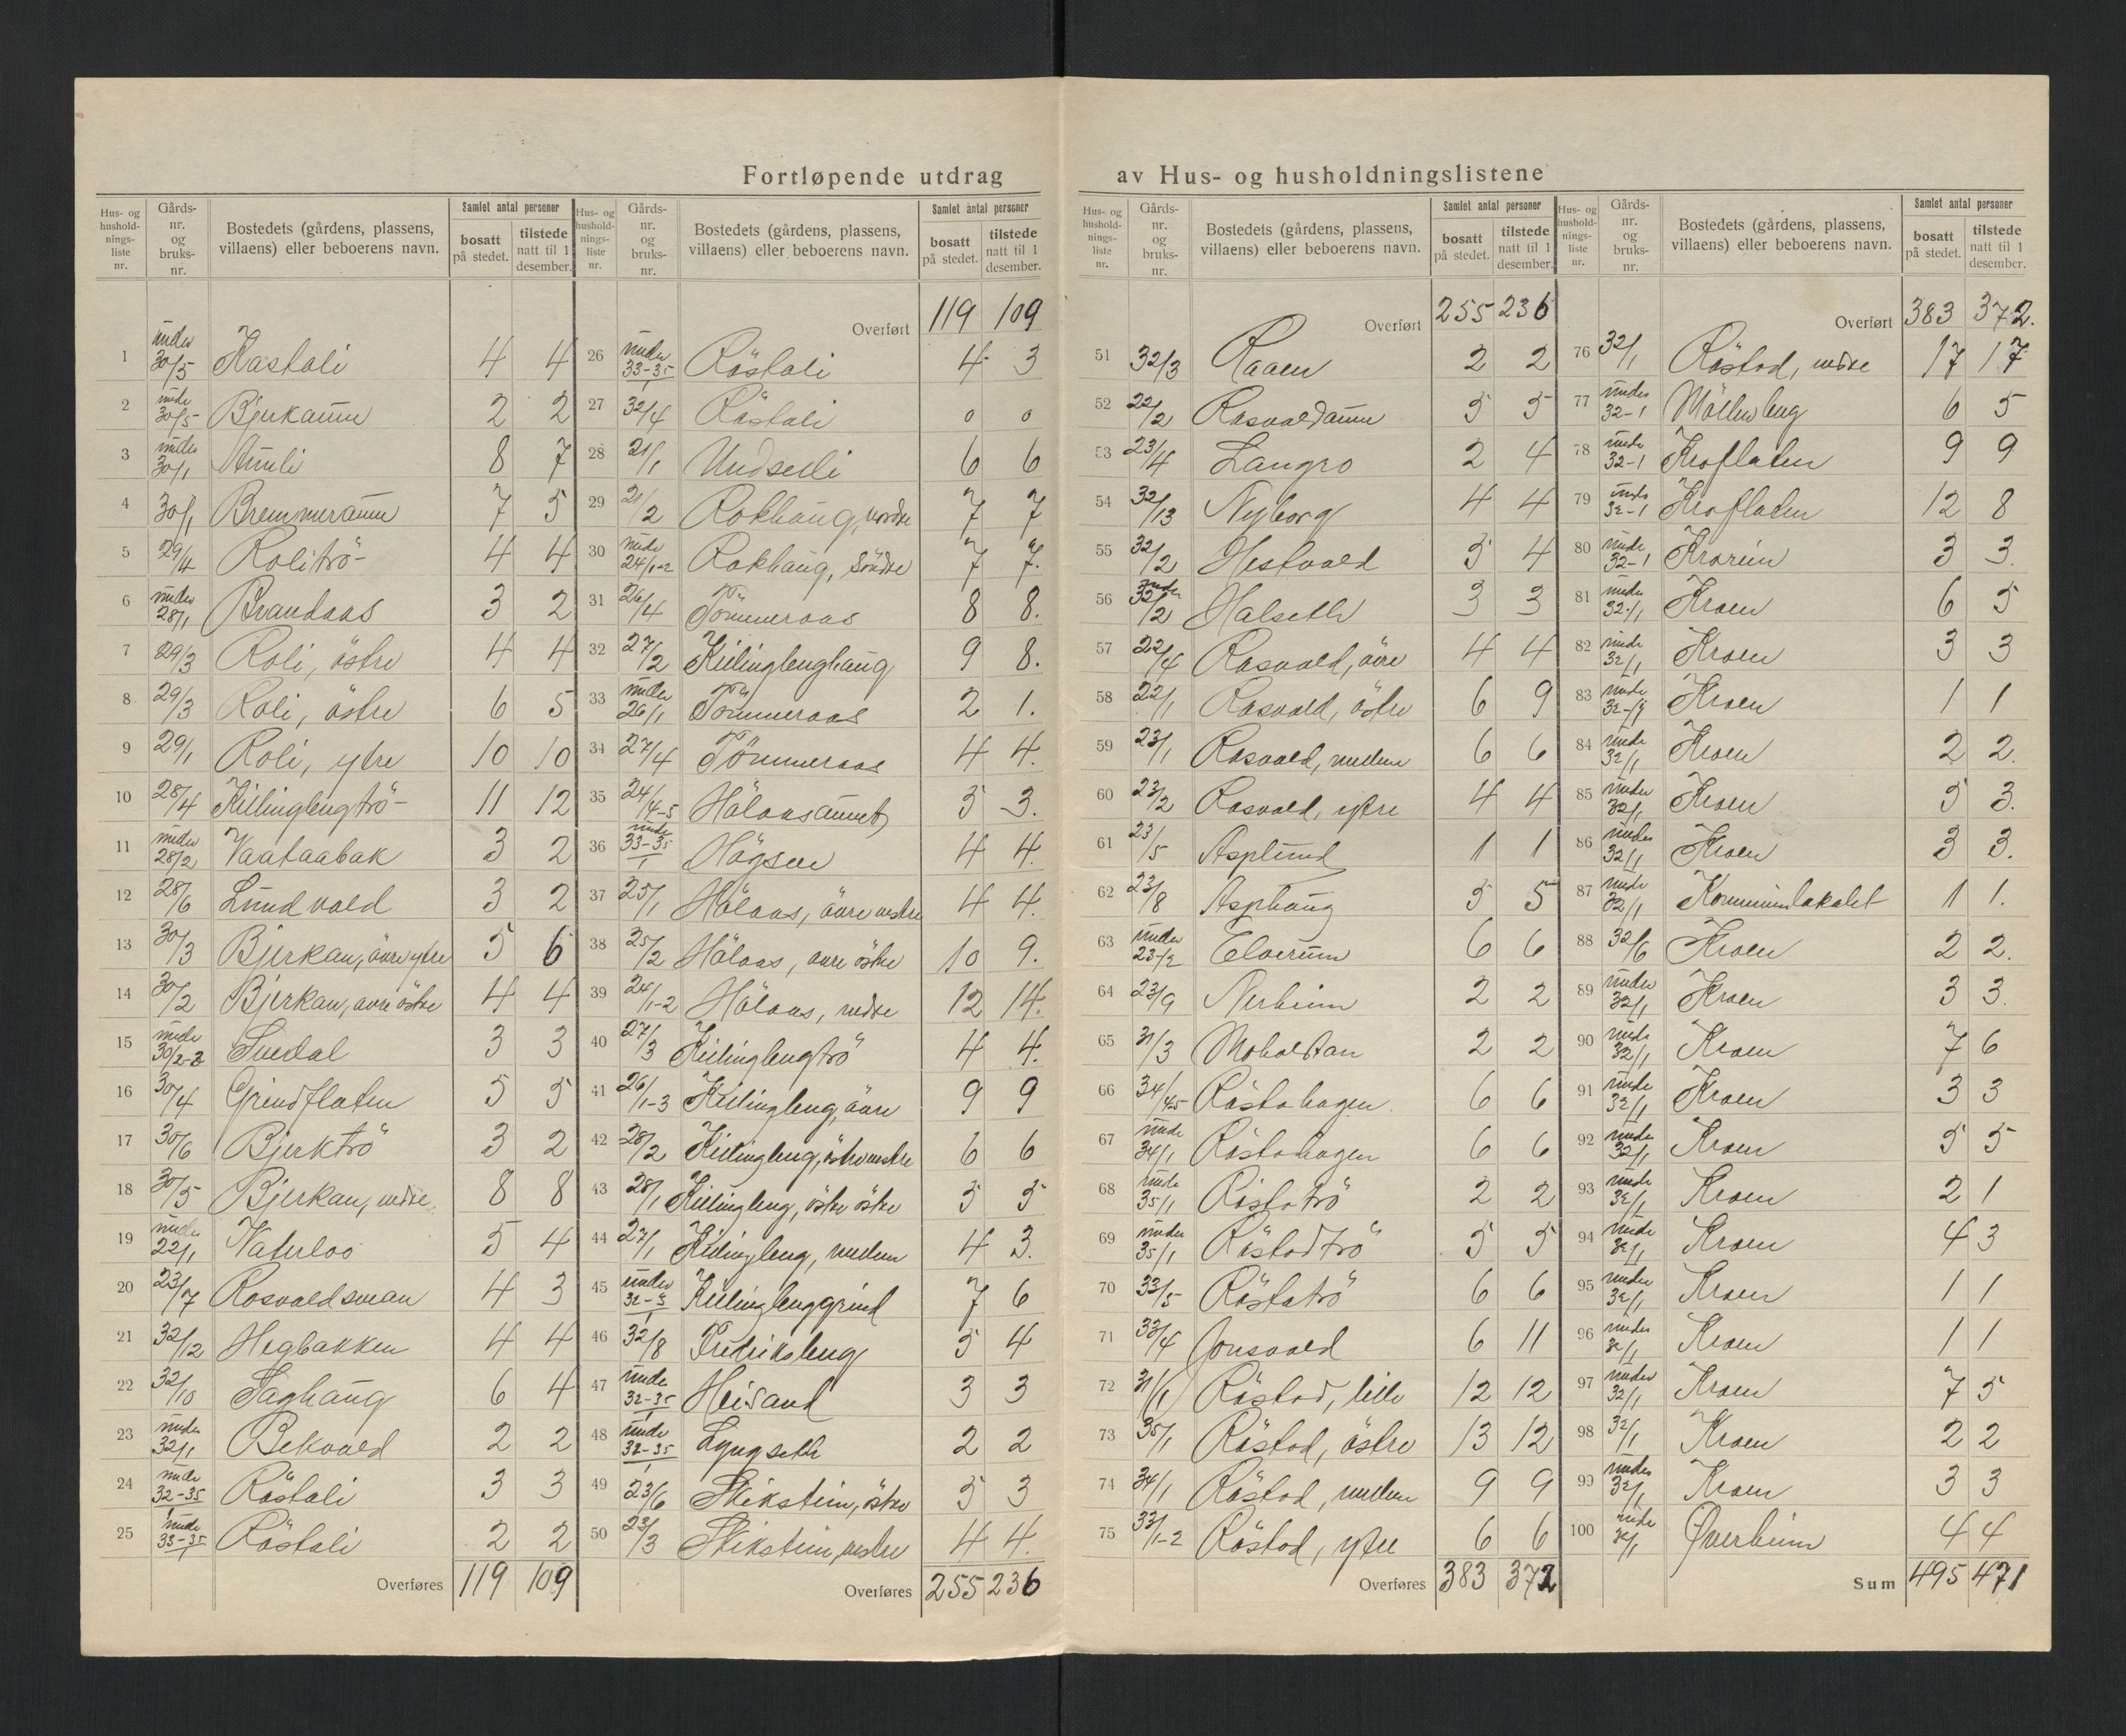 Fortløpende utdrag av Hus- og husholdningslistene
Hus- og husholdnings-liste nr. Gårds-nr. og bruks-nr. Bostedets (gårdens, plassens, villaens) eller beboerens navn. Samlet antal personer bosatt på stedet. tilstede natt til 1 desember.
1 under 30/5 Kastali 4 4
2 unde 30/5 Bjerkaunn 2 2
3 under 30/1 Aunli 8 7
4 30/1 Bremmeraunn 7 5
5 29/4 Rolitrö 4 4
6 under 28/1 Brandaas 3 2
7 29/3 Roli, östre 4 4
8 29/3 Roli, östre 6 5
9 29/1 Roli, ytre 10 10
10 28/4 Killinglengtrö 11 12
11 under 28/2 Vaataabak 3 2
12 28/6 Lundvold 3 2
13 30/3 Bjerkan, övre ytre 5 6
14 30/2 Bjerkan, övre östre 4 4
15 unde 30/2-3 Suedal 3 3
16 30/4 Grindflaten 5 5
17 30/6 Bjerktrö 3 2
18 30/5 Bjerkan, nedre 8 8
19 under 22/1 Vaterloo 5 4
20 23/7 Rosvoldsman 4 3
21 32/12 Hegbakken 4 4
22 32/10 Saghaug 6 4
23 under 32/1 Bekvold 2 2
24 unde 32-35 Röstali 3 3
25 unde 33-35/1 Röstali 2 2
Overføres 119 109
Hus- og husholdnings-liste nr. Gårds-nr. og bruks-nr. Bostedets (gårdens, plassens, villaens) eller beboerens navn. Samlet antal personer bosatt på stedet. tilstede natt til 1 desember.
Overført 119 109
26 under 33-35/1 Röstali 4 3
27 32/4 Röstali 0 0
28 21/1 Undseili 6 6
29 21/2 Rokhaug, nordre 7 7
30 unde 24/1-2 Rokhaug, Söndre 7 7.
31 26/4 Tömmeraas 8 8.
32 27/2 Killinglenghaug 9 8.
33 under 26/1 Tömmeraas 2 1.
34 27/4 Tömmeraas 4 4.
35 24/4-5 Hölaasaunet 5 3.
36 unde 33-35/1 Högsve 4 4.
37 25/1 Hölaas, övre vestre 4 4.
38 25/2 Hölaas, övre östre 10 9.
39 24/1-2 Hölaas, nedre 12 14.
40 27/3 Killinglengtrö 4 4.
41 26/1-3 Killingleng, övre 9 9
42 28/2 Killingleng, östre vestre 6 6
43 28/1 Killingleng, östre östre 5 5
44 27/1 Killingleng, mellem 4 3.
45 under 32-5/1 Killinglenggrind 7 6
46 32/8 Fredriksleng 5 4
47 unde 32-35/1 Heisand 3 3
48 unde 32-35/1 Lyngseth 2 2
49 23/6 Stikstein, östre 5 3
50 23/3 Stikstein, vestre 4 4.
Overføres 255 236
Hus- og husholdnings-liste nr. Gårds-nr. og bruks-nr. Bostedets (gårdens, plassens, villaens) eller beboerens navn. Samlet antal personer bosatt på stedet. tilstede natt til 1 desember.
Overført 255 236
51 32/3 Raaen 2 2
52 22/2 Rosvoldaunn 5 5
53 23/4 Langro 2 4
54 32/13 Nyborg 4 4
55 32/2 Hestvold 5 4
56 under 32/2 Halseth 3 3
57 22/4 Rosvold, övre 4 4
58 22/1 Rosvold, östre 6 9
59 23/1 Rosvold, mellem 6 6
60 23/2 Rosvold, ytre 4 4
61 23/5 Asplund 1 1
62 23/8 Asphaug 5 5
63 under 23/2 Elverum 6 6
64 23/9 Nerheim 2 2
65 31/3 Moholdtan 2 2
66 34/4-5 Röstohagen 6 6
67 unde 34/1 Röstohagen 6 6
68 unde 35/1 Röstotrö 2 2
69 under 35/1 Röstadtrö 5 5
70 33/5 Röstatrö 6 6
71 33/4 Jonsvold 6 11
72 31/1 Röstad, lille 12 12
73 35/1 Röstad, östre 13 12
74 34/1 Röstad, mellem 9 9
75 33/1-2 Röstad, ytre 6 6
Overføres 383 372
Hus- og husholdnings-liste nr. Gårds-nr. og bruks-nr. Bostedets (gårdens, plassens, villaens) eller beboerens navn. Samlet antal personer bosatt på stedet. tilstede natt til 1 desember.
Overført 383 372.
76 32/1 Röstad, nedre 17 17
77 under 32-1 Möllenberg 6 5
78 unde 32-1 Kroflaten 9 9
79 unde 32-1 Kroflaten 12 8
80 unde 32-1 Kroreim 3 3.
81 under 32-/1 Kroen 6 5
82 unde 32/1 Kroen 3 3
83 unde 32-/1 Kroen 1 1
84 unde 32/1 Kroen 2 2.
85 under 32/1 Kroen 5 3.
86 under 32/1 Kroen 3 3.
87 unde 32/1 Kommunelokalet 1 1.
88 32/6 Kroen 2 2.
89 under 32/1 Kroen 3 3.
90 unde 32/1 Kroen 7 6
91 unde 32/1 Kroen 3 3
92 under 32/1 Kroen 5 5
93 unde 32/1 Kroen 2 1
94 unde 32/1 Kroen 4 3
95 under 32/1 Kroen 1 1
96 under 32/1 Kroen 1 1
97 under 32/1 Kroen 7 5
98 32/1 Kroen 2 2
99 under 32/1 Kroen 3 3
100 unde 32/1 Øverheim 4 4
Sum 495 471